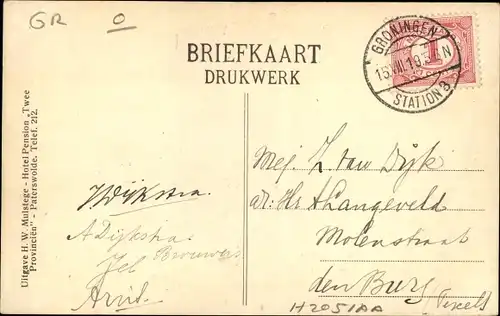 GR O
BRIEFKAART
DRUKWERK
GRONINGEN
1
N
STATION 3
Uitgave H. W. Mulstege - Hotel Pension „Twee
Provinciën" - Paterswolde. Telef. 212.
Dijkstra.
A Dijkstra.
Jel Brouwers
Mej. Z. van Dijk
Langeveld
Molenstraat
den Burg
(Texel)
H2051AA